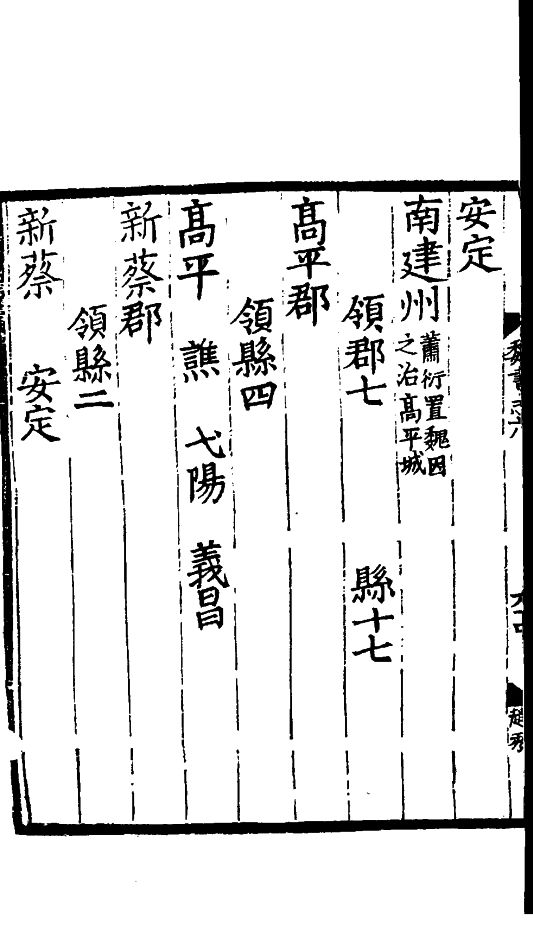 安定
南建州蕭衍置魏因
之治高平城
領郡七 縣十七
高平郡
領縣四
高平 譙 弋陽 義昌
新蔡郡
領縣二
新蔡 安定